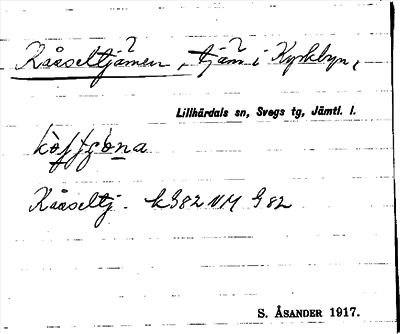 Kååseltjämen, tjäm i Kyrkbyn,
Lillhärdals sn, Svegs tg, Jämtl. l.
Kååseltj. k 382 VM 982
S. ÅSANDER 1917.